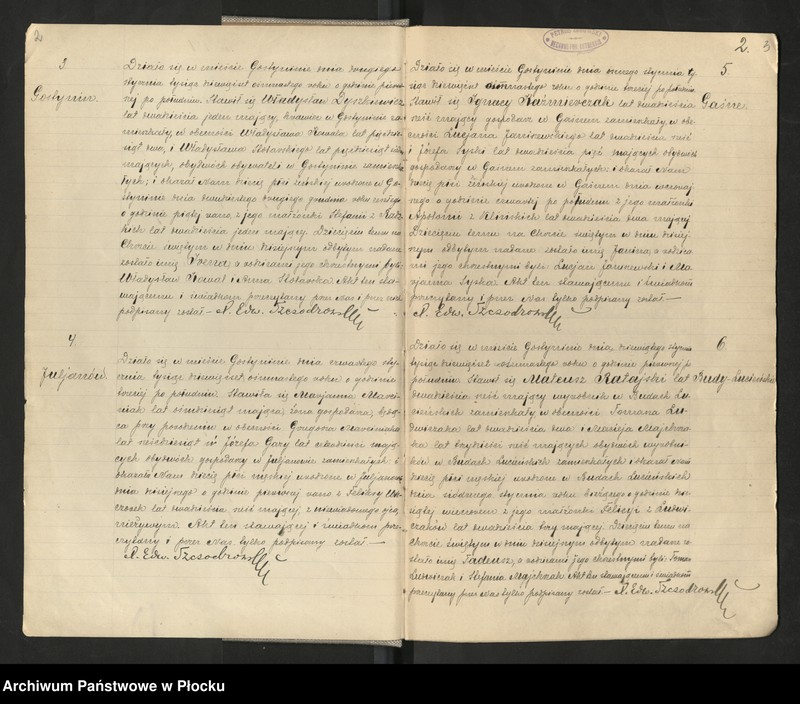 2
3.
Gostynin.
Działo się w mieście Gostyninie dnia drugiego
stycznia tysiąc dziewięćset ośmnastego roku o godzinie pierw-
szej po południu. Stawił się Władysław Dyszkiewicz
lat dwadzieścia jeden mający, krawiec w Gostyninie za-
mieszkały, w obecności Władysława Kowala lat pięćdzie-
siąt dwa, i Władysława Stolarskiego lat pięćdziesiąt
mających, obydwóch obywateli w Gostyninie zamiesz-
kałych; i okazał Nam dziecię płci żeńskiej urodzone w Go-
styninie dnia dwudziestego drugiego grudnia roku zeszłego
o godzinie piątej rano z jego małżonki Stefanii z
lat dwadzieścia jeden mającej. Dziecięciu temu na
Chrzcie świętym w dniu dzisiejszym odbytym nadane
zostało imię a rodzicami jego chrzestnymi byli:
Władysław Kowal i Anna Stolarska. Akt ten sta-
wającemu i świadkom przeczytany przez Nas i przez
podpisany został — R. Edw. Szczodrowski
4
Juljanów.
Działo się w mieście Gostyninie dnia czwartego sty-
cznia tysiąc dziewięćset ośmnastego roku o godzinie
trzeciej po południu. Stawiła się Marjanna Marci-
niak lat siedmdziesiąt mająca, żona gospodarza, będą-
ca przy porodzeniu w obecności Grzegorza Marciniaka
lat sześćdziesiąt i Józefa Gary lat czterdzieści mają-
cych obydwóch gospodarzy w Juljanowie zamieszkałych i
okazała Nam dziecię płci męskiej urodzone w Juljanowie
dnia dzisiejszego o godzinie pierwszej rano z Feliksy
lat dwadzieścia sześć mającej z niewiadomego ojca,
nieżywym. Akt ten stawającej i świadkom prze-
czytany i przez Nas tylko podpisany został —
R. Edw. Szczodrowski
2. 3
5.
Gaśne
Działo się w mieście Gostyninie dnia ósmego stycznia ty-
siąc dziewięćset ośmnastego roku o godzinie trzeciej po południu.
Stawił się Ignacy Kaźmierczak lat dwadzieścia
sześć mający gospodarz w Gaśnem zamieszkały, w obe-
cności Lucjana Janiszewskiego lat dwadzieścia sześć
i Józefa Syski lat dwadzieścia pięć mających obydwóch
gospodarzy w Gaśnem zamieszkałych i okazał Nam
dziecię płci żeńskiej urodzone w Gaśnem dnia wczoraj-
szego o godzinie czwartej po południu z jego małżonki
Apolonii z lat dwadzieścia dwa mającej
Dziecięciu temu na Chrzcie świętym w dniu dzisiej-
szym odbytym nadane zostało imię Janina, a rodzica-
mi jego chrzestnymi byli: Lucjan Janiszewski i Ma-
rjanna Syska. Akt ten stawającemu i świadkom
przeczytany i przez Nas tylko podpisany został —
R. Edw. Szczodrowski
6
Budy-Lucieńskie
Działo się w mieście Gostyninie dnia dziewiątego stycznia
tysiąc dziewięćset ośmnastego roku o godzinie pierwszej po
południu Stawił się Mateusz Ratajski lat
dwadzieścia sześć mający wyrobnik w Budach Lu-
cieńskich zamieszkały w obecności Tomasza Lu-
dwiczaka lat dwadzieścia dwa i Macieja Majchrza-
ka lat trzydzieści sześć mających obydwóch wyrobni-
ków w Budach Lucieńskich zamieszkałych i okazał Nam
dziecię płci męskiej urodzone w Budach Lucieńskich
dnia siódmego stycznia roku bieżącego o godzinie dzie-
siątej wieczorem z jego małżonki Felicji z Ludwi-
czaków lat dwadzieścia trzy mającej. Dziecięciu temu na
Chrzcie świętym w dniu dzisiejszym odbytym nadane zo-
stało imię Tadeusz, a rodzicami jego chrzestnymi byli: Tomasz
Ludwiczak i Stefania Majchrzak. Akt ten stawającemu i świadkom
przeczytany przez Nas tylko podpisany został — R. Edw. Szczodrowski
Archiwum Państwowe w Płocku